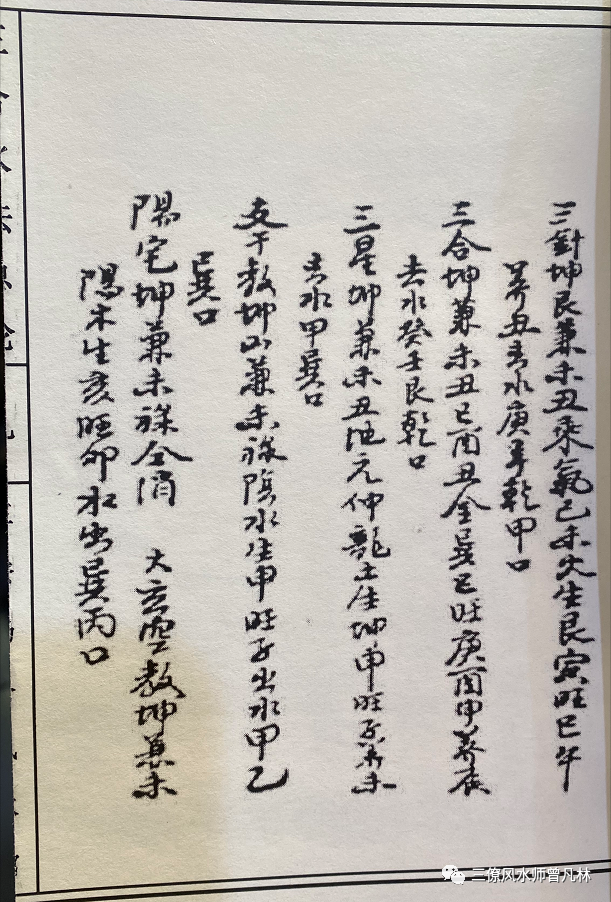 三針坤艮兼未丑乘氣己未火生艮寅旺巳午
养丑去水庚辛乾甲口
三合坤兼未丑巳酉丑金巽巳旺庚酉甲养
去水癸壬艮乾口
三星坤兼未丑地元仲龍土生坤申旺子养未
去水甲巽口
支干教坤山兼未禄陰水生甲旺子出水甲乙
巽口
陽宅坤兼未禄全消 大玄空教坤兼未
陽木生亥旺卯水出巽丙口
三僚风水师曾凡林